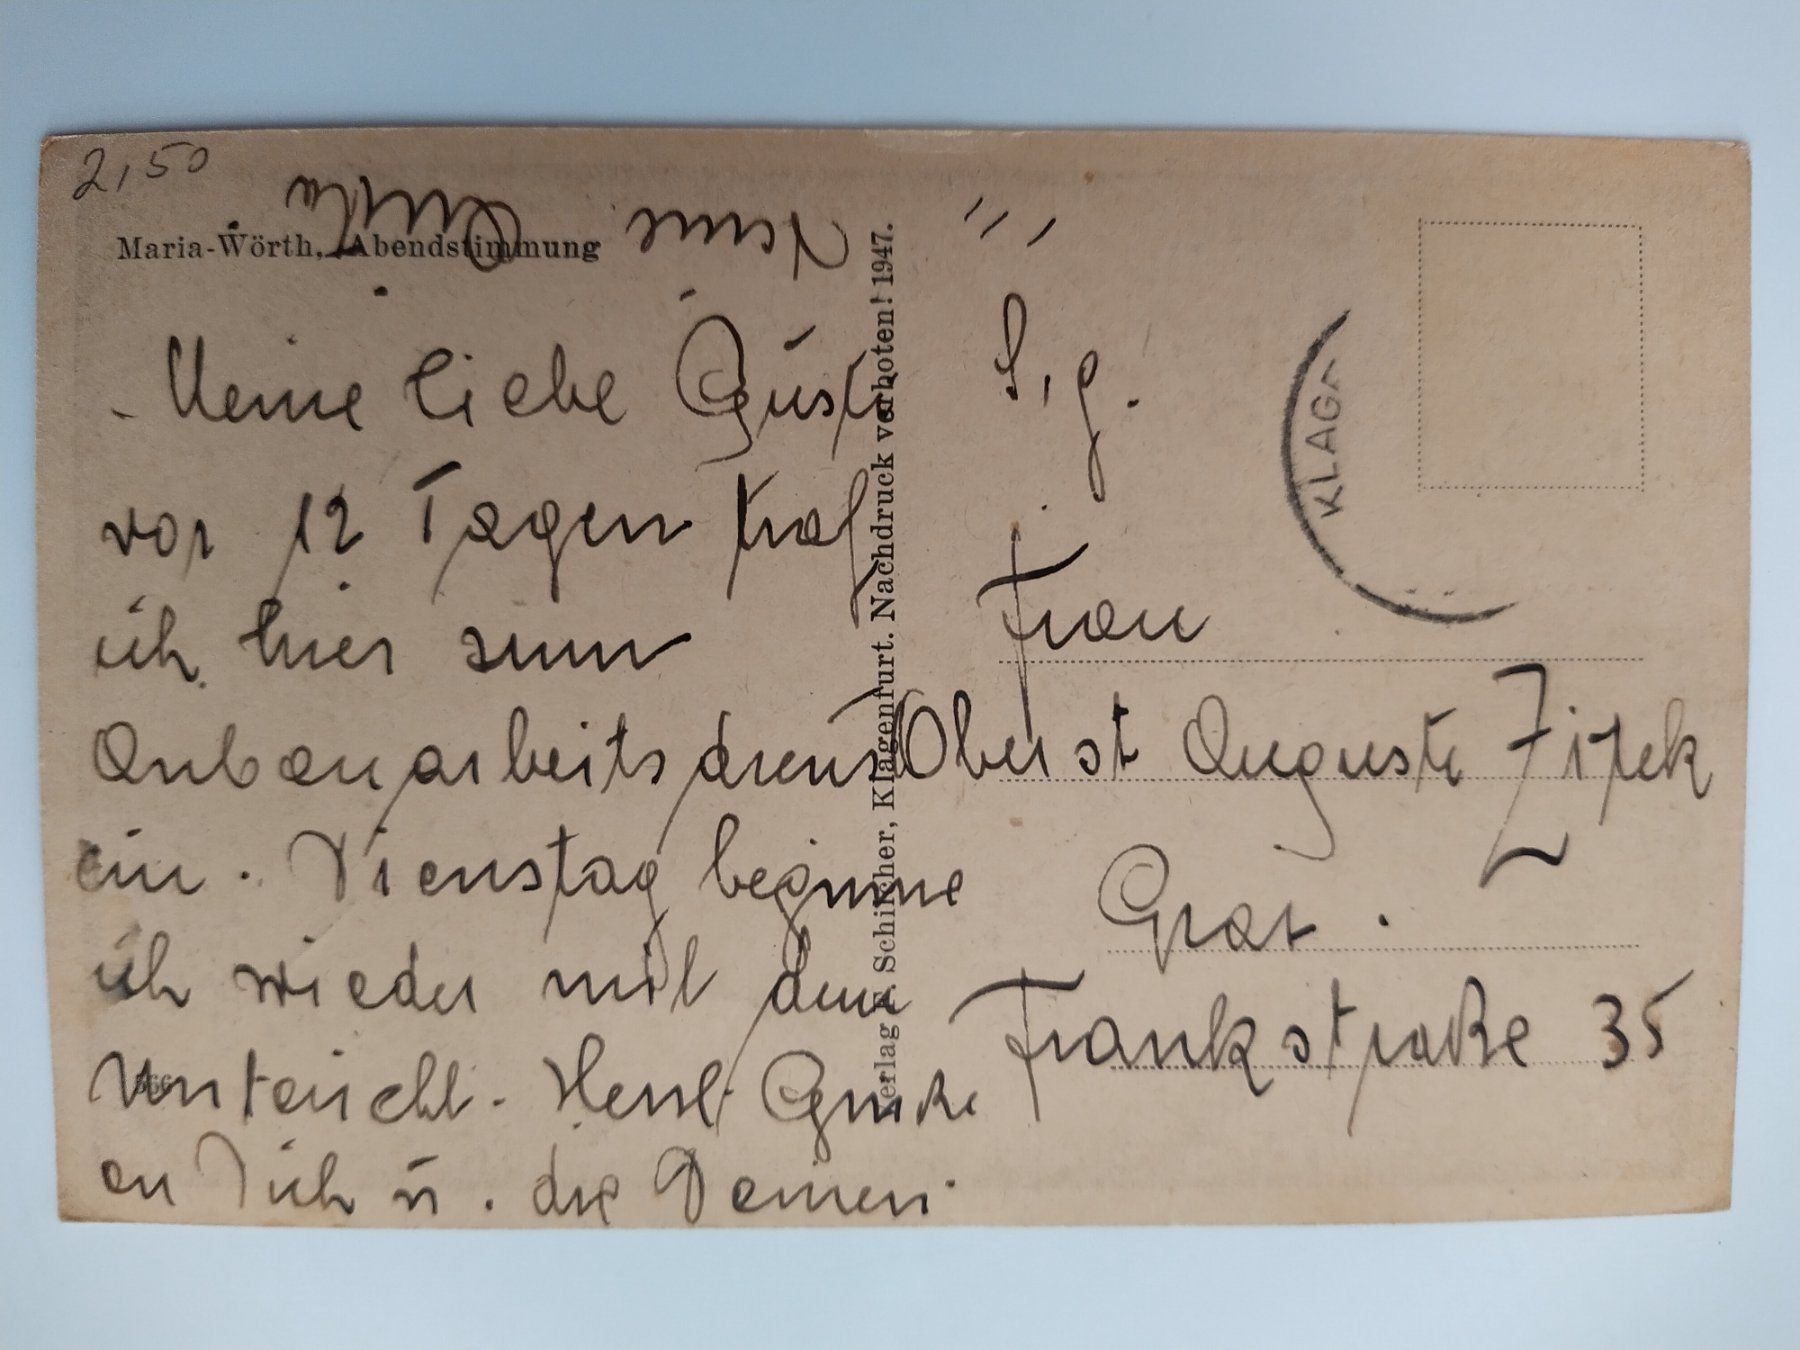 2,50
Maria-Wörth, Abendstimmung
Meine liebe Gusti
vor 12 Tagen traf
ich hier zum
Anbauarbeitsdienst
ein. Dienstag beginne
ich wieder mit dem
Unterricht. Herzl. Grüße
an Dich u. die Deinen.
Deine
Verlag Schilcher, Klagenfurt. Nachdruck verboten! 1947.
S. g.
Frau
Oberst Auguste Zipek
Graz.
Frankstraße 35
KLAG